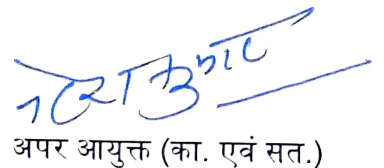 अपर आयुक्त (का. एवं सत.)